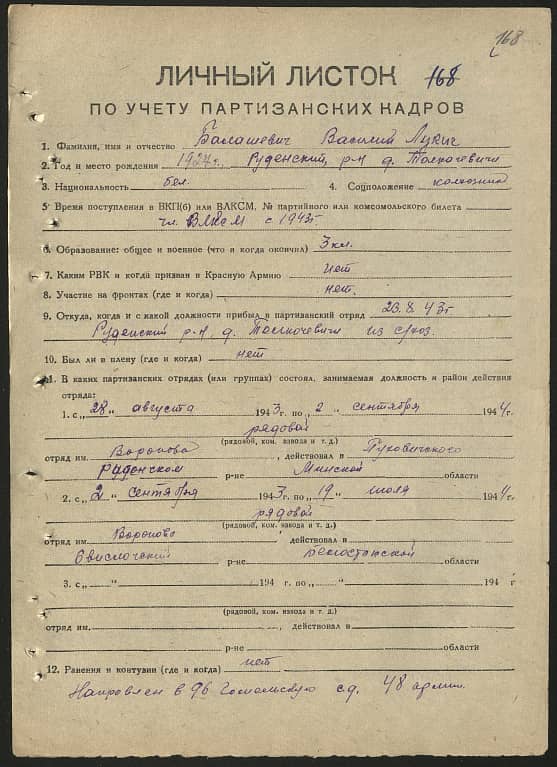 168
ЛИЧНЫЙ ЛИСТОК 168
ПО УЧЕТУ ПАРТИЗАНСКИХ КАДРОВ
1. Фамилия, имя и отчество Балашевич Василий Лукич
2. Год и место рождения 1927 г. Руденский, р-н д. Толкочевичи
3. Национальность бел. 4. Соцположение колхозник
5. Время поступления в ВКП(б) или ВЛКСМ, № партийного или комсомольского билета
чл. ВЛКСМ с 1943г
6. Образование: общее и военное (что и когда окончил) 3 кл.
7. Каким РВК и когда призван в Красную Армию нет
8. Участие на фронтах (где и когда) нет.
9. Откуда, когда и с какой должности прибыл в партизанский отряд 28.8.43г
Руденский р-н, д. Толкочевичи из
10. Был ли в плену (где и когда) нет
11. В каких партизанских отрядах (или группах) состоял, занимаемая должность и район действия
отряда:
1. с „28„ августа 1943г. по „2„ сентября 1944г.
рядовой
(рядовой, ком. взвода и т. д.)
отряд им. Воронова, действовал в Пуховичского
Руденском р-не Минской области
2. с „2„ сентября 1943г. по „19„ июля 1944г.
рядовой
(рядовой, ком. взвода и т. д.)
отряд им. Воронова, действовал в
Свислочский р-не Белостокской области
3. с „ “ 194 г. по „ “ 194 г
(рядовой, ком. взвода и т. д.)
отряд им. , действовал в
р-не области
12. Ранения и контузии (где и когда) нет
Направлен в 96 Гомельскую с.д. 48 армии.